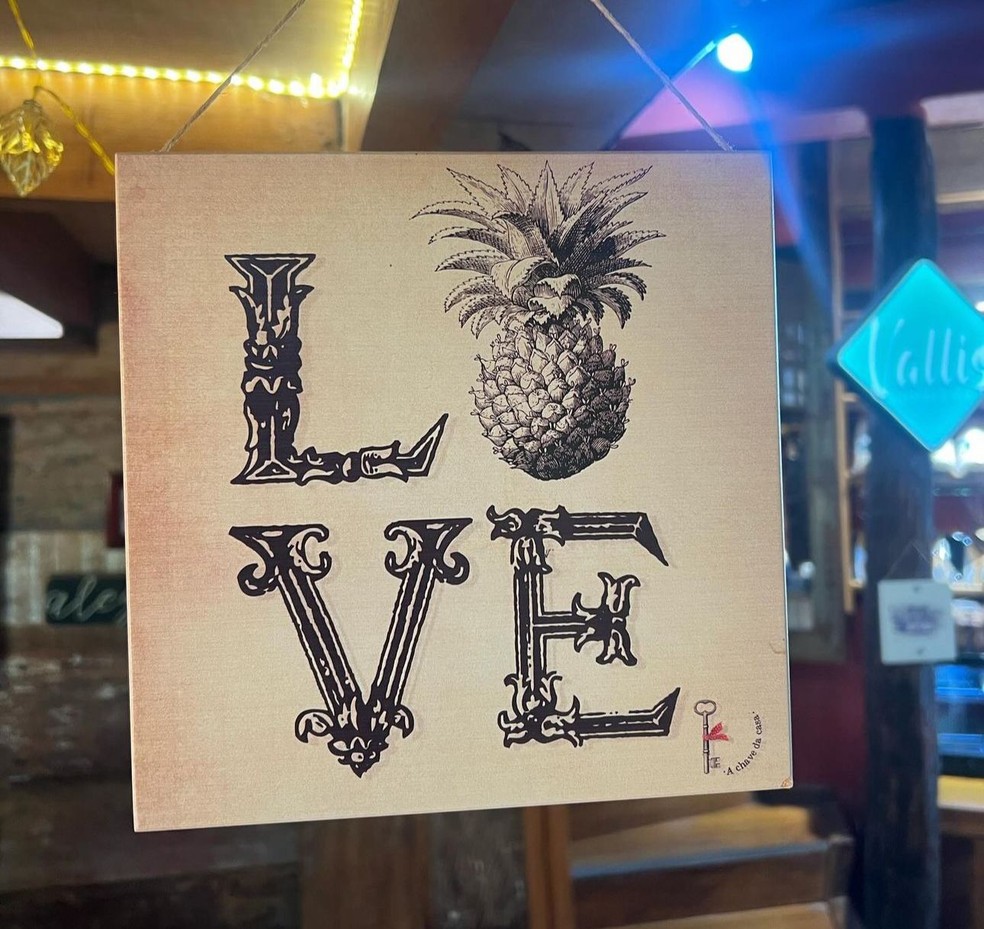 L
VE
'A chave da casa'
Vallis